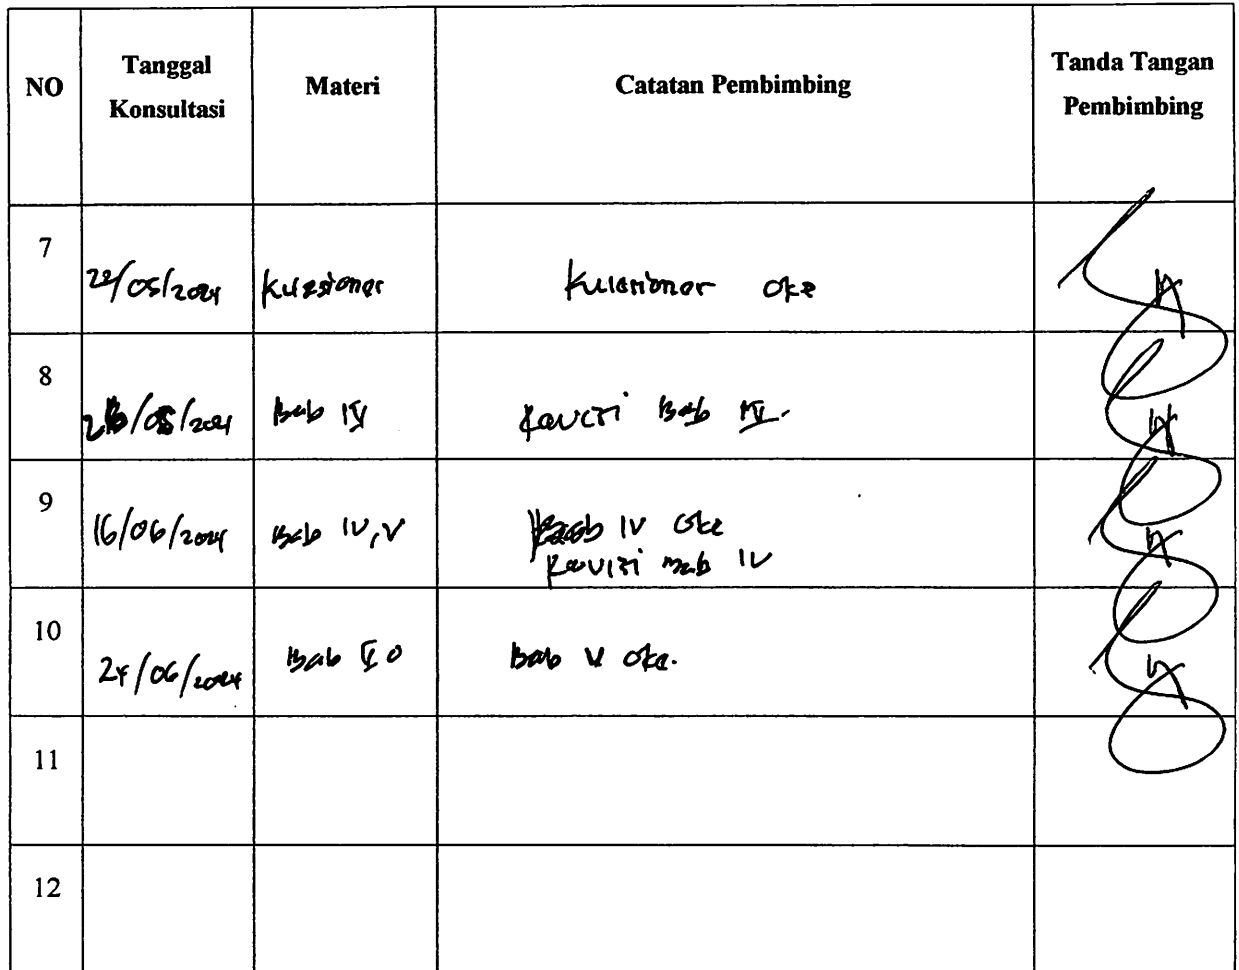 NO Tanggal Konsultasi Materi Catatan Pembimbing Tanda Tangan Pembimbing
7 22/05/2024 Kuesioner Kuesioner Oke
8 /2024 Bab IV Revisi Bab IV.
9 16/06/2024 Bab IV, V Bab IV Oke
Revisi Bab IV
10 24/06/2024 Bab V Bab V Oke.
11
12